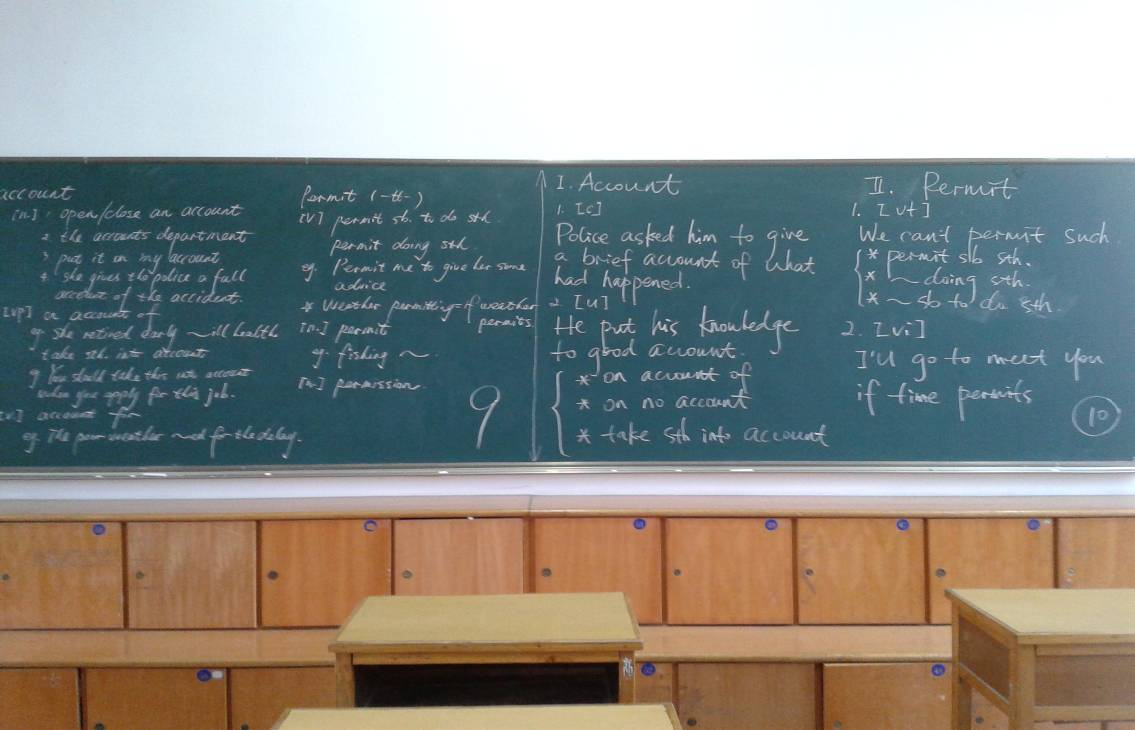 account
[n.] 1. open/close an account
2. the accounts department
3. put it on my account
4. she gives the police a full
account of the accident.
[vp] on account of
eg. She retired early ~ ill health
take sth. into account
eg. You should take this into account
when you apply for this job.
[v.] account for
eg. The poor weather ~ed for the delay.
Permit (-tt-)
[v] permit sb. to do sth.
permit doing sth.
eg. Permit me to give her some
advice
* Weather permitting = if weather
permits.
[n.] permit
eg. fishing ~.
[n.] permission.
9
I. Account
1. [c]
Police asked him to give
a brief account of what
had happened.
2. [u]
He put his knowledge
to good account.
* on account of
* on no account
* take sth into account
II. Permit
1. [vt]
We can't permit such.
* permit sb sth.
* ~ doing sth.
* ~ sb to do sth.
2. [vi]
I'll go to meet you
if time permits
10